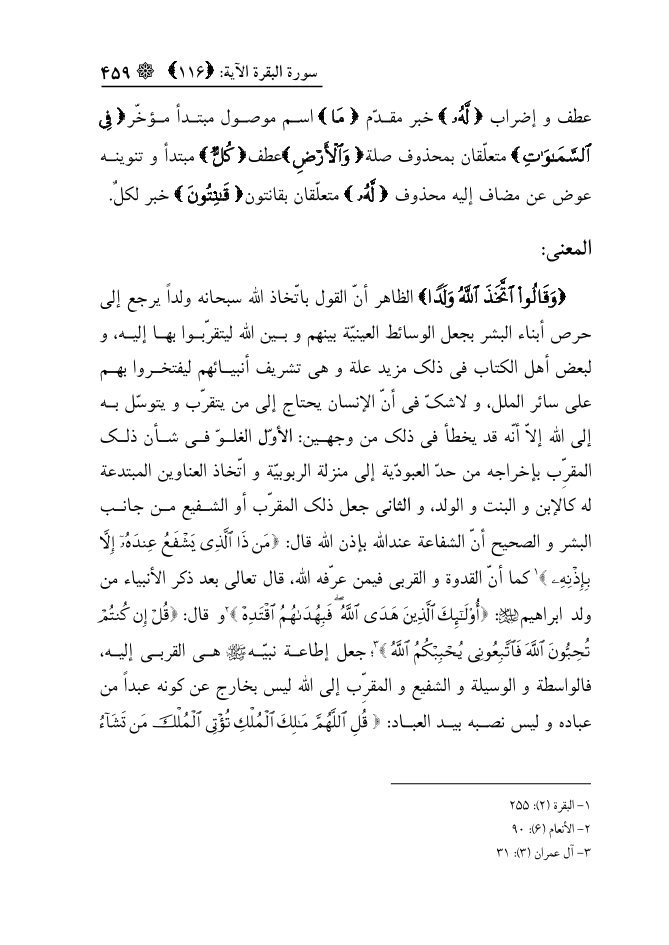 سورة البقرة الآية: ﴿۱۱۶﴾ ۴۵۹
عطف و إضراب ﴿لَّهُۥ﴾ خبر مقدّم ﴿مَا﴾ اسم موصول مبتدأ مؤخّر﴿فِي
ٱلسَّمَٰوَٰتِ﴾ متعلّقان بمحذوف صلة﴿وَٱلْأَرْضِ﴾عطف﴿كُلٌّ﴾ مبتدأ و تنوينه
عوض عن مضاف إليه محذوف ﴿لَّهُۥ﴾ متعلّقان بقانتون﴿قَٰنِتُونَ﴾ خبر لكلٌ.
المعنى:
﴿وَقَالُواْ ٱتَّخَذَ ٱللَّهُ وَلَدًا﴾ الظاهر أنّ القول باتّخاذ الله سبحانه ولداً يرجع إلى
حرص أبناء البشر بجعل الوسائط العينيّة بينهم و بين الله ليتقرّبوا بها إليه، و
لبعض أهل الكتاب فى ذلک مزيد علة و هى تشريف أنبيائهم ليفتخروا بهم
على سائر الملل، و لاشکّ فى أنّ الإنسان يحتاج إلى من يتقرّب و يتوسّل به
إلى الله إلاّ أنّه قد يخطأ فى ذلک من وجهين: الأوّل الغلوّ فى شأن ذلک
المقرِّب بإخراجه من حدّ العبودّية إلى منزلة الربوبيّة و اتّخاذ العناوين المبتدعة
له كالإبن و البنت و الولد، و الثانى جعل ذلک المقرّب أو الشفيع من جانب
البشر و الصحيح أنّ الشفاعة عندالله بإذن الله قال: ﴿مَن ذَا ٱلَّذِى يَشْفَعُ عِندَهُۥٓ إِلَّا
بِإِذْنِهِۦ﴾۱ كما أنّ القدوة و القربى فيمن عرّفه الله، قال تعالى بعد ذكر الأنبياء من
ولد ابراهيم: ﴿أُوْلَٰٓئِكَ ٱلَّذِينَ هَدَى ٱللَّهُ ۖ فَبِهُدَىٰهُمُ ٱقْتَدِهْ﴾۲و قال: ﴿قُلْ إِن كُنتُمْ
تُحِبُّونَ ٱللَّهَ فَٱتَّبِعُونِى يُحْبِبْكُمُ ٱللَّهُ﴾۳؛ جعل إطاعة نبيّهﷺ هى القربى إليه،
فالواسطة و الوسيلة و الشفيع و المقرِّب إلى الله ليس بخارج عن كونه عبداً من
عباده و ليس نصبه بيد العباد: ﴿قُلِ ٱللَّهُمَّ مَٰلِكَ ٱلْمُلْكِ تُؤْتِى ٱلْمُلْكَ مَن تَشَآءُ
۱- البقرة (۲): ۲۵۵
۲- الأنعام (۶): ۹۰
۳- آل عمران (۳): ۳۱